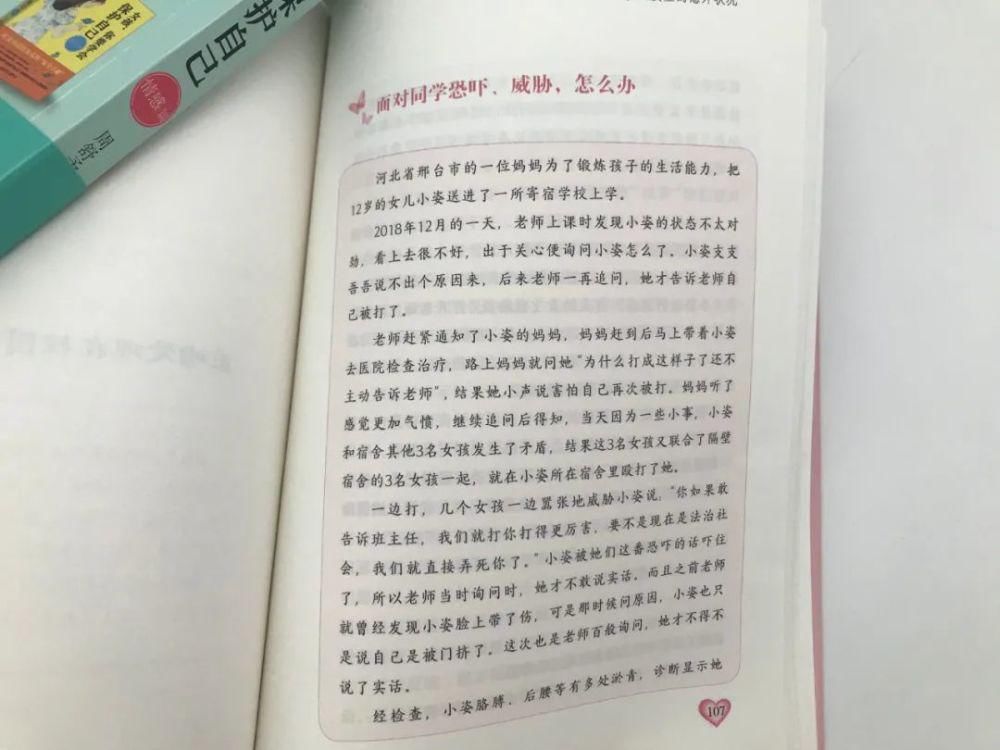 保护自己
女孩，你要学会
保护自己
情感
周舒
面对同学恐吓、威胁，怎么办
河北省邢台市的一位妈妈为了锻炼孩子的生活能力，把
12岁的女儿小姿送进了一所寄宿学校上学。
2018年12月的一天，老师上课时发现小姿的状态不太对
劲，看上去很不好，出于关心便询问小姿怎么了。小姿支支
吾吾说不出个原因来，后来老师一再追问，她才告诉老师自
己被打了。
老师赶紧通知了小姿的妈妈，妈妈赶到后马上带着小姿
去医院检查治疗，路上妈妈就问她“为什么打成这样子了还不
主动告诉老师”，结果她小声说害怕自己再次被打。妈妈听了
感觉更加气愤，继续追问后得知，当天因为一些小事，小姿
和宿舍其他3名女孩发生了矛盾，结果这3名女孩又联合了隔壁
宿舍的3名女孩一起，就在小姿所在宿舍里殴打了她。
一边打，几个女孩一边嚣张地威胁小姿说：“你如果敢
告诉班主任，我们就打你打得更厉害，要不是现在是法治社
会，我们就直接弄死你了。”小姿被她们这番恐吓的话吓住
了，所以老师当时询问时，她才不敢说实话。而且之前老师
就曾经发现小姿脸上带了伤，可是那时候问原因，小姿也只
是说自己是被门挤了。这次也是老师百般询问，她才不得不
说了实话。
经检查，小姿胳膊、后腰等有多处淤青，诊断显示她
107